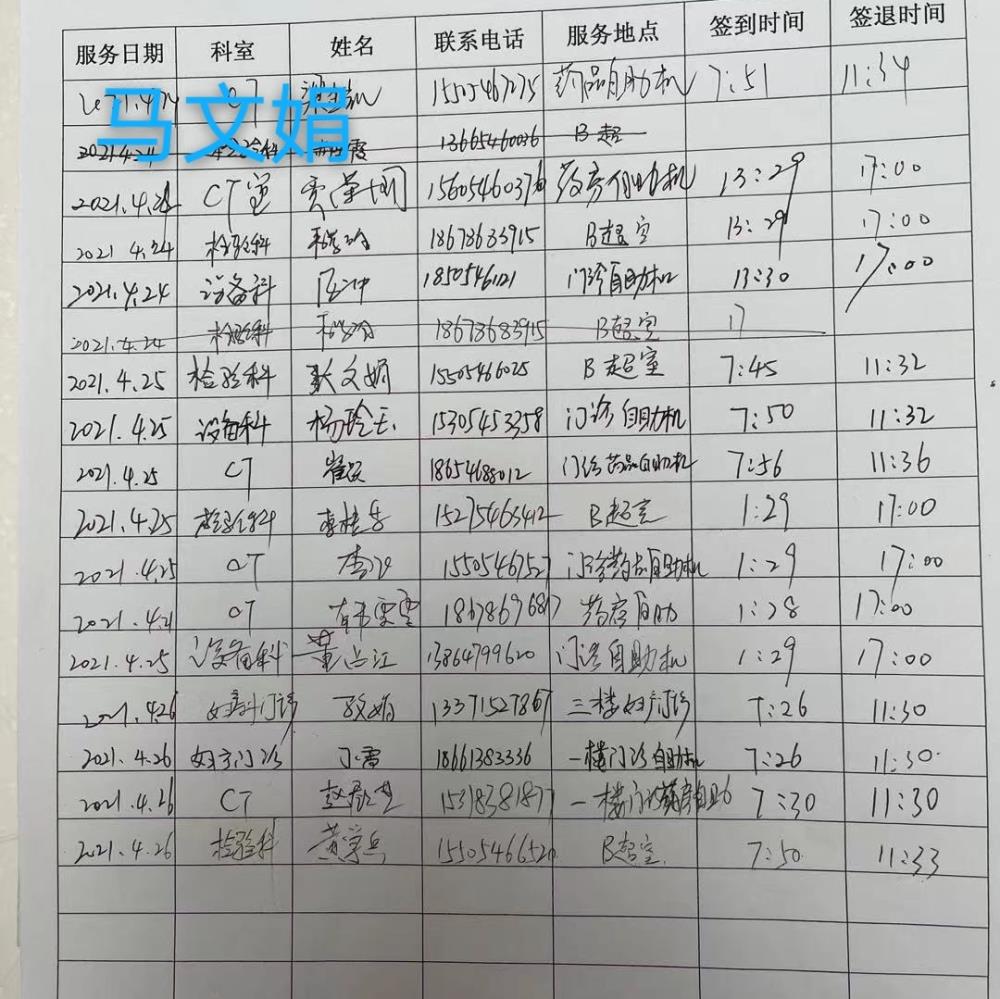 服务日期 科室 姓名 联系电话 服务地点 签到时间 签退时间
CT 15505467275 药品自助机 7:51 11:34
马文娟
2021.4.24 检验科 霞 13665460036 B超
2021.4.24 CT室 15605460376 药房自助机 13:29 17:00
2021.4.24 检验科 18678683915 B超室 13:29 17:00
2021.4.24 设备科 18505461121 门诊自助机 13:30 17:00
2021.4.24 检验科 18678683915 B超室 17
2021.4.25 检验科 耿文娟 15505466025 B超室 7:45 11:32
2021.4.25 设备科 杨玲玉 15305453358 门诊自助机 7:50 11:32
2021.4.25 CT 18654688012 门诊药品自助机 7:56 11:36
2021.4.25 检验科 李桂芳 15275463412 B超室 1:29 17:00
2021.4.25 CT 15505467527 门诊药品自助机 1:29 17:00
2021.4.21 CT 韩雯雯 18678696817 药房自助 1:28 17:00
2021.4.25 设备科 董占江 13864799620 门诊自助机 1:29 17:00
2021.4.26 妇科门诊 13371527867 三楼妇产门诊 7:26 11:30
2021.4.26 妇产门诊 丁雪 18661383336 一楼门诊自助机 7:26 11:30
2021.4.26 CT 15318381877 一楼门诊药房自助 7:30 11:30
2021.4.26 检验科 黄学兵 15505466520 B超室 7:50 11:33